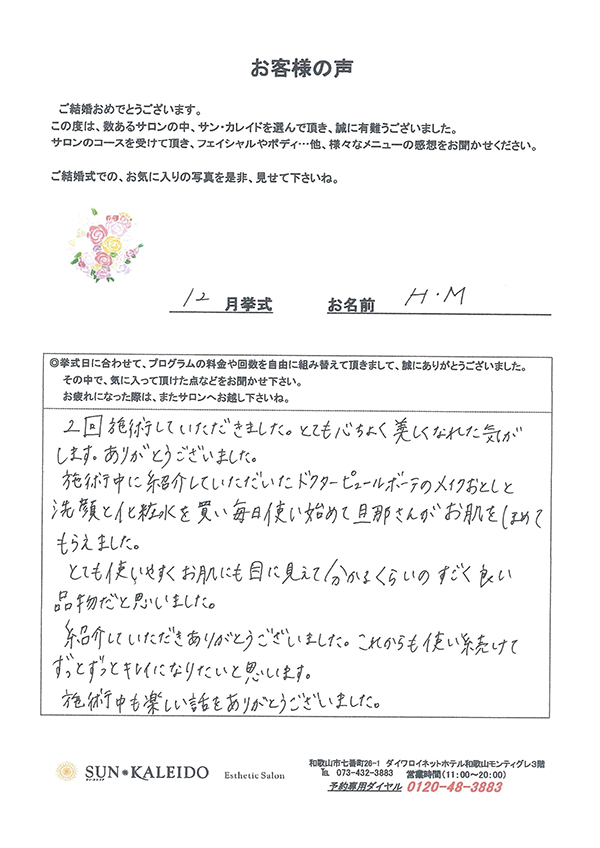 お客様の声
ご結婚おめでとうございます。
この度は、数あるサロンの中、サン・カレイドを選んで頂き、誠に有難うございました。
サロンのコースを受けて頂き、フェイシャルやボディ…他、様々なメニューの感想をお聞かせください。
ご結婚式での、お気に入りの写真を是非、見せて下さいね。
12 月挙式 お名前 H.M
◎挙式日に合わせて、プログラムの料金や回数を自由に組み替えて頂きまして、誠にありがとうございました。
その中で、気に入って頂けた点などをお聞かせ下さい。
お疲れになった際は、またサロンへお越し下さいね。
2回施術していただきました。とても心ちよく美しくなれた気が
します。ありがとうございました。
施術中に紹介していただいたドクターピュールボーテのメイクおとしと
洗顔と化粧水を買い毎日使い始めて旦那さんがお肌をほめて
もらえました。
とても使いやすくお肌にも目に見えて分かるくらいのすごく良い
品物だと思いました。
紹介していただきありがとうございました。これからも使い続けて
ずっとずっとキレイになりたいと思います。
施術中も楽しい話をありがとうございました。
SUN KALEIDO Esthetic Salon
和歌山市七番町26-1 ダイワロイネットホテル和歌山モンティグレ3階
TEL 073-432-3883 営業時間(11:00~20:00)
予約専用ダイヤル 0120-48-3883